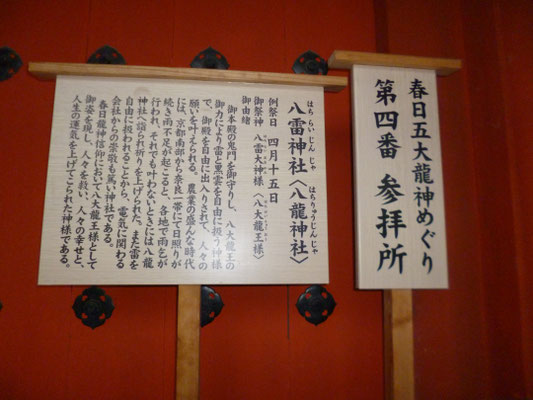 春日五大龍神めぐり
第四番 参拝所
はちらいじんじゃ はちりゅうじんじゃ
八雷神社〈八龍神社〉
例祭日 四月十五日
御祭神 八雷大神様〈八大龍王様〉
御由緒
御本殿の鬼門を御守りし、八大龍王の
御力により雷と黒雲を自由に扱う神様
で、御殿を自由に出入りされて、人々の
願いを叶えられる。農業の盛んな時代
には、京都南部から奈良一帯にて日照りが
続き雨不足が起こると、各地で雨乞が
行われ、それでも叶わないときには八龍
神社へ詣られ祈りを上げられた。また雷を
自由に扱われることから、電気に関わる
会社からの崇敬も篤い神社である。
春日龍神信仰において八大龍王様として
御姿を現し、人々を救い、人々の幸せと、
人生の運気を上げてこられた神様である。